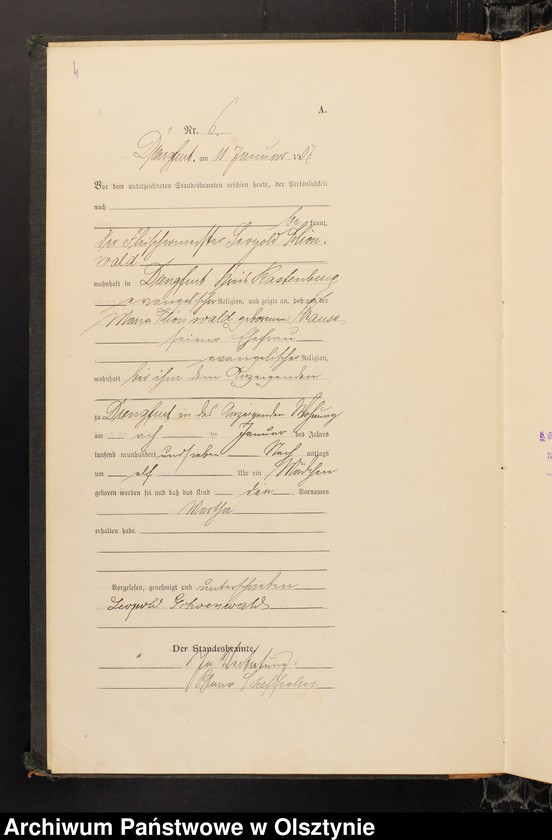 4
A.
Nr. 6.
Dengfurt, am 11 Januar 1907.
Vor dem unterzeichneten Standesbeamten erschien heute, der Persönlichkeit
nach
be kannt,
der Fleischermeister Leopold Schön-
wald
wohnhaft in Drengfurt Kreis Rastenburg
evangelischer Religion, und zeigte an, daß von der
Maria Schönwald geborenen Krause,
seiner Ehefrau
evangelischer Religion,
wohnhaft bei ihm dem Anzeigenden
zu Drengfurt in des Anzeigenden Wohnung
am acht ten Januar des Jahres
tausend neunhundert und sieben Nach mittags
um elf Uhr ein Mädchen
geboren worden sei und daß das Kind den Vornamen
Martha
erhalten habe.
Vorgelesen, genehmigt und unterschrieben
Leopold Schoenwald
Der Standesbeamte.
In Vertretung.
Archiwum Państwowe w Olsztynie